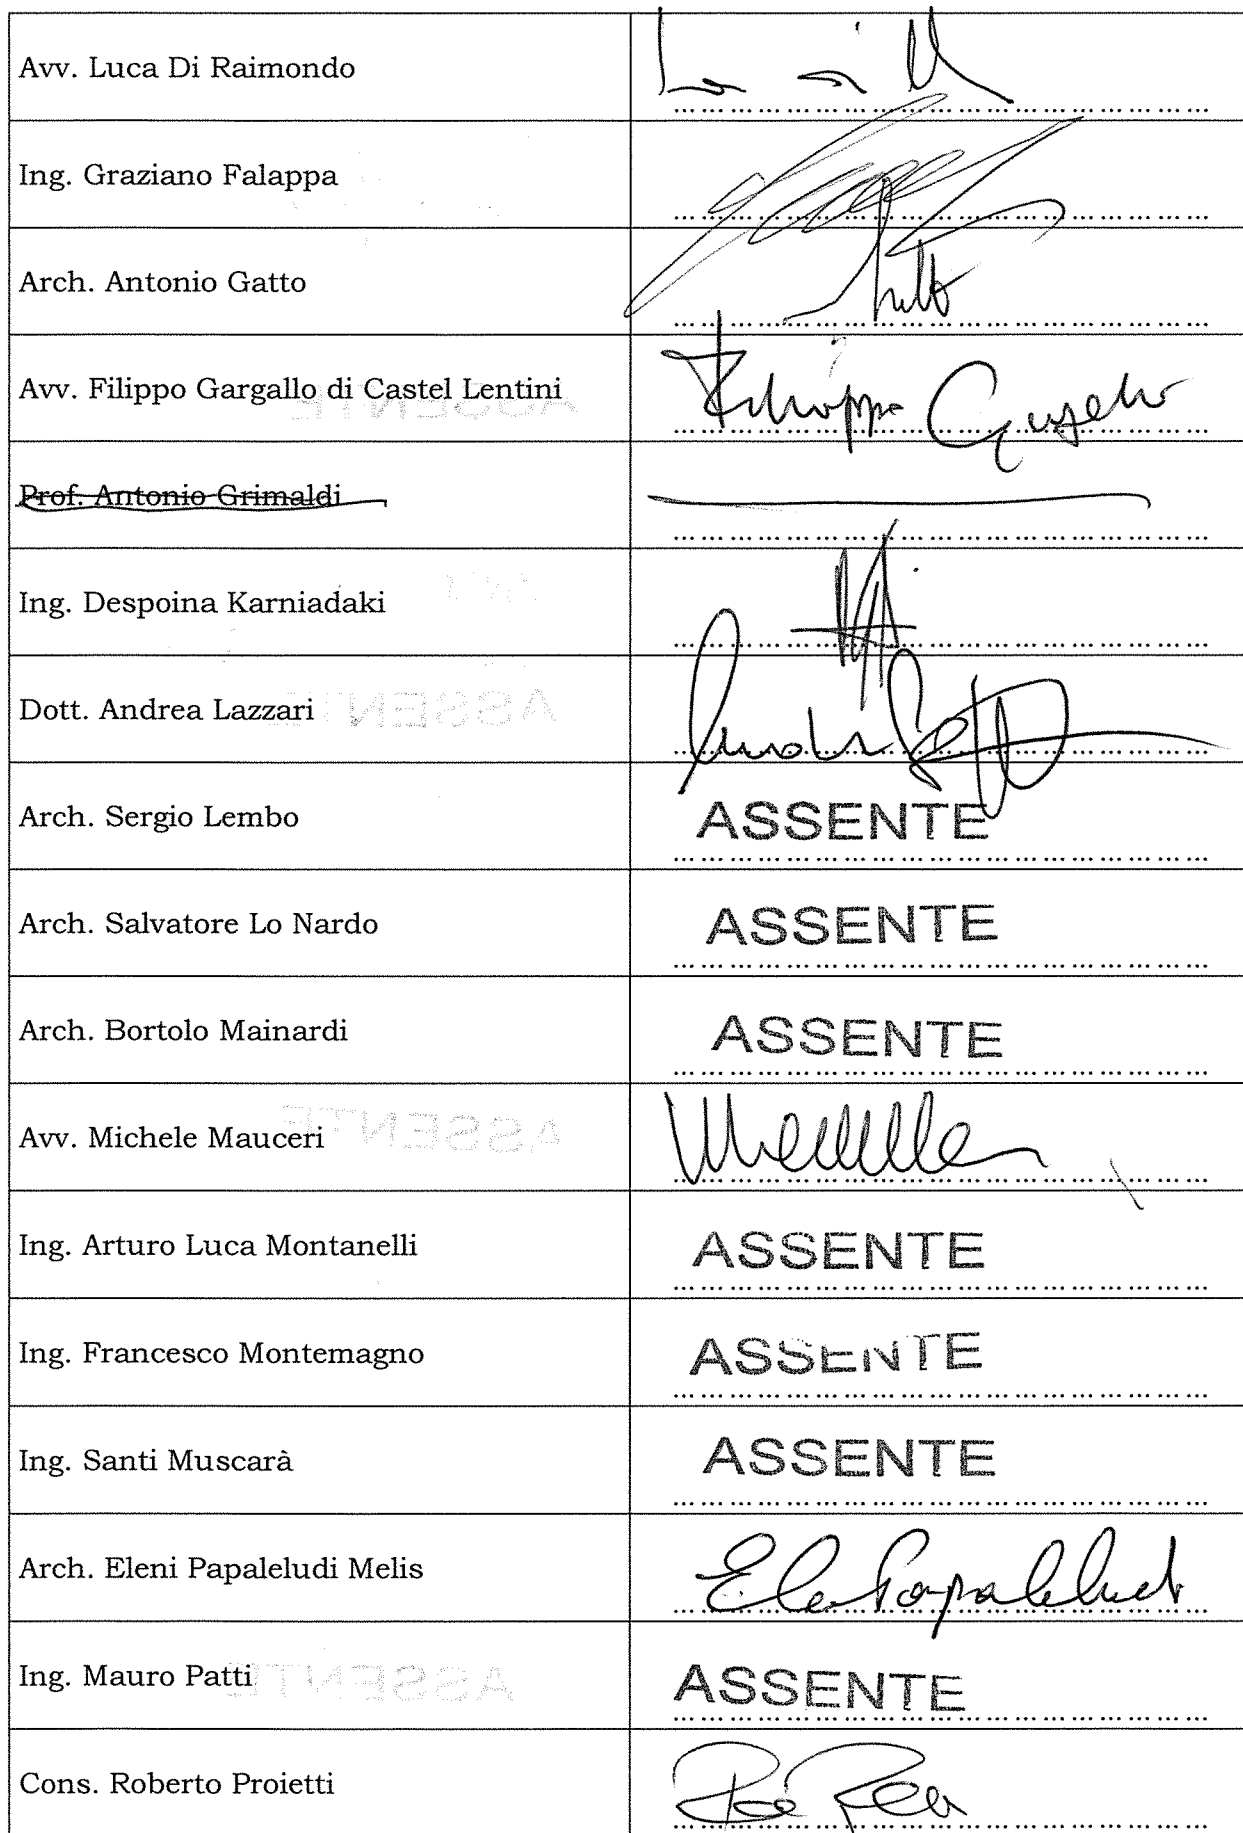 Avv. Luca Di Raimondo
Ing. Graziano Falappa
Arch. Antonio Gatto
Avv. Filippo Gargallo di Castel Lentini
Filippo Gargallo
Prof. Antonio Grimaldi
Ing. Despoina Karniadaki
Dott. Andrea Lazzari
Arch. Sergio Lembo ASSENTE
Arch. Salvatore Lo Nardo ASSENTE
Arch. Bortolo Mainardi ASSENTE
Avv. Michele Mauceri
Ing. Arturo Luca Montanelli ASSENTE
Ing. Francesco Montemagno ASSENTE
Ing. Santi Muscarà ASSENTE
Arch. Eleni Papaleludi Melis
Ing. Mauro Patti ASSENTE
Cons. Roberto Proietti